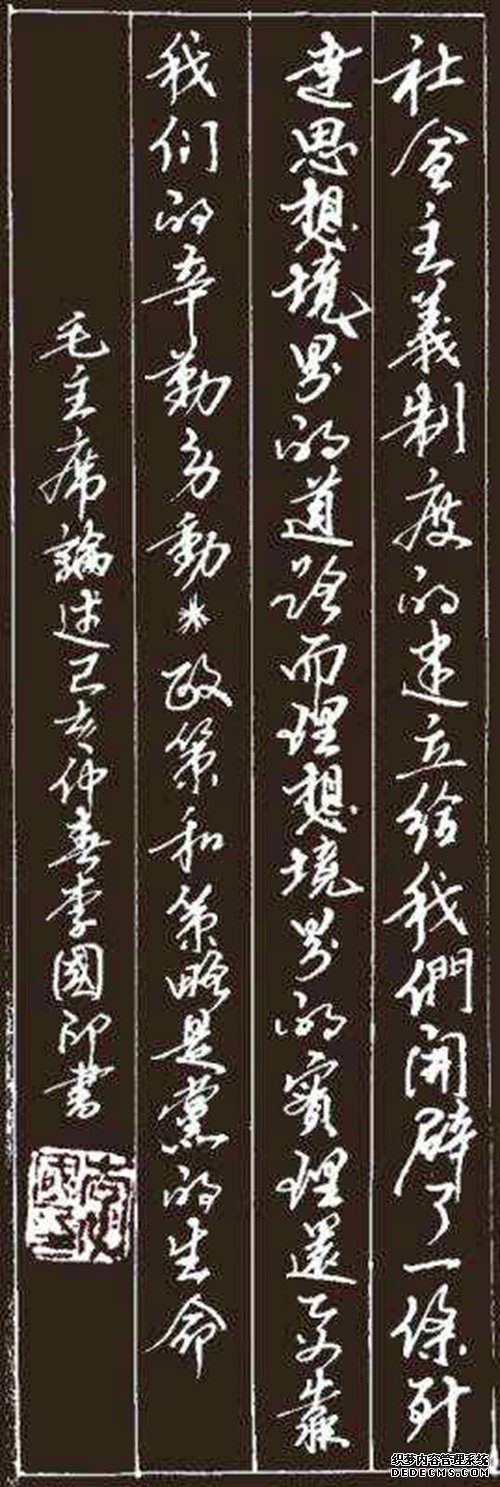 社会主義制度的建立给我們開辟了一條到
達思想境界的道路而理想境界的實現還要靠
我们的辛勤劳動*政策和策略是黨的生命
毛主席論述己亥仲春李國印書
织梦内容管理系统
DEDECMS.COM